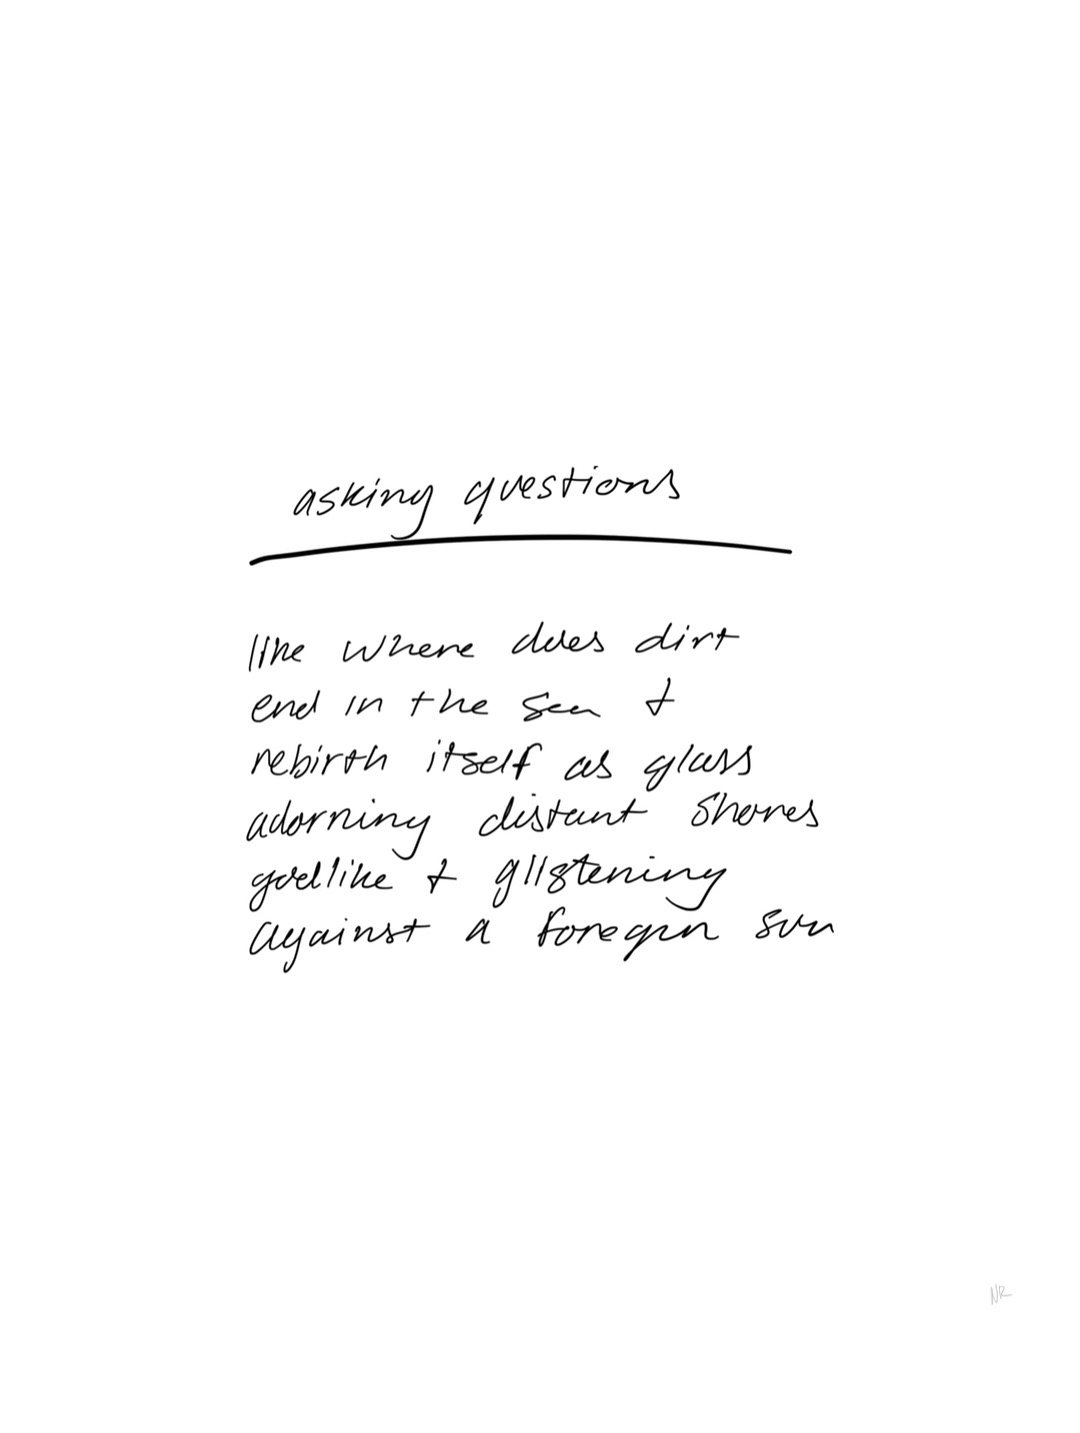 asking questions
like where does dirt
end in the sea &
rebirth itself as glass
adorning distant shores
godlike & glistening
against a foregin sun
NR